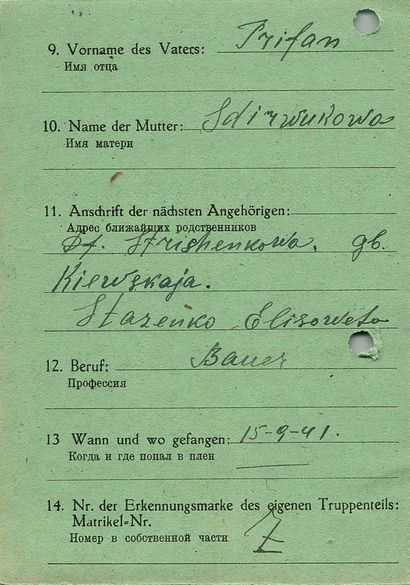 9. Vorname des Vaters: Trifan
Имя отца
10. Name der Mutter: Sdirwukowa
Имя матери
11. Anschrift der nächsten Angehörigen:
Адрес ближайших родственников
Df. Strishenkowa. gb.
Kiewskaja.
Stazenko Elisoweta
12. Beruf: Bauer
Профессия
13 Wann und wo gefangen: 15-9-41.
Когда и где попал в плен
14. Nr. der Erkennungsmarke des eigenen Truppenteils:
Matrikel-Nr.
Номер в собственной части